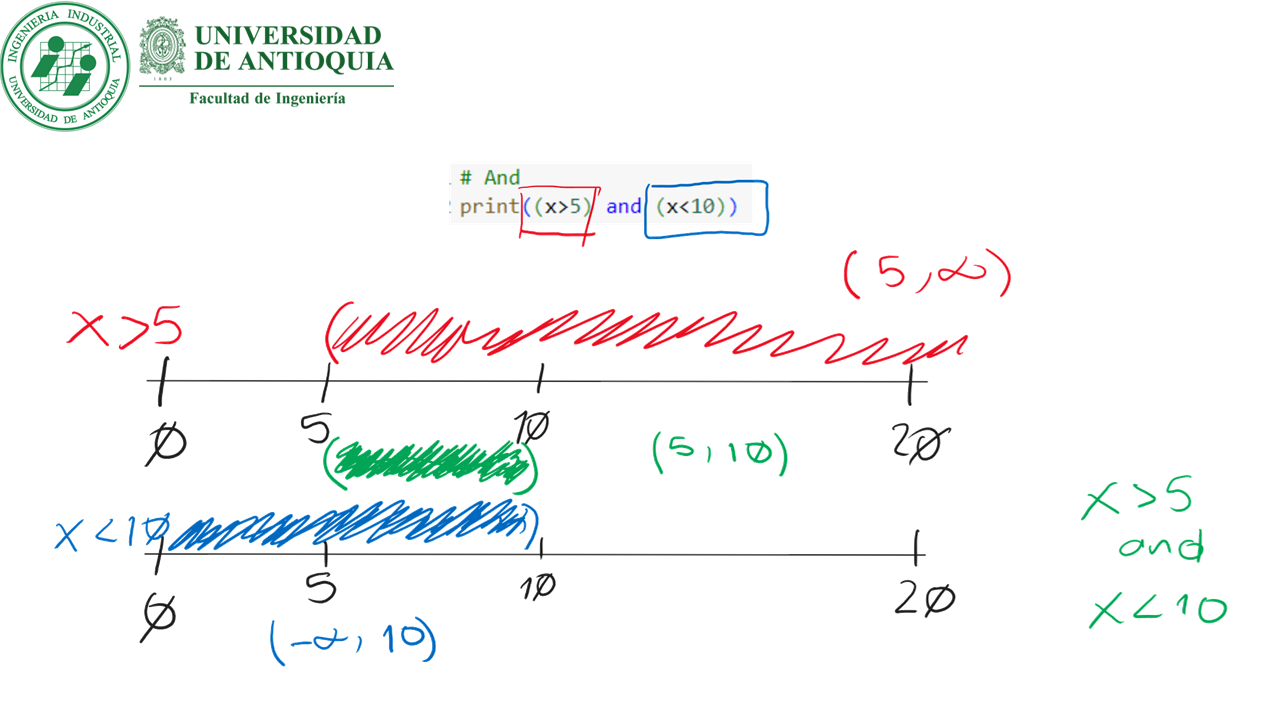 INGENIERIA INDUSTRIAL
UNIVERSIDAD DE ANTIOQUIA
UNIVERSIDAD
DE ANTIOQUIA
1803
Facultad de Ingeniería
# And
print((x>5) and (x<10))
(5,∞)
x>5
0 5 10 20
(5,10)
x<10
0 5 10 20
(-∞,10)
x>5
and
x<10